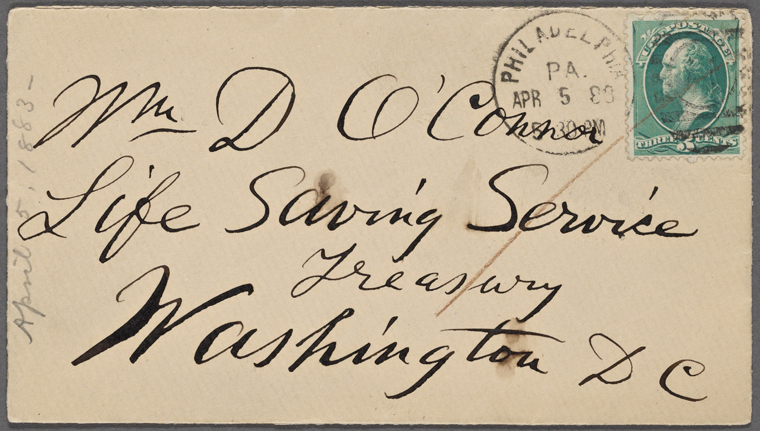 PHILADELPHIA
PA.
APR 5 83
5 30 PM
U.S. POSTAGE
THREE 3 CENTS
Wm D O'Connor
Life Saving Service
Treasury
Washington D C
April 5, 1883-